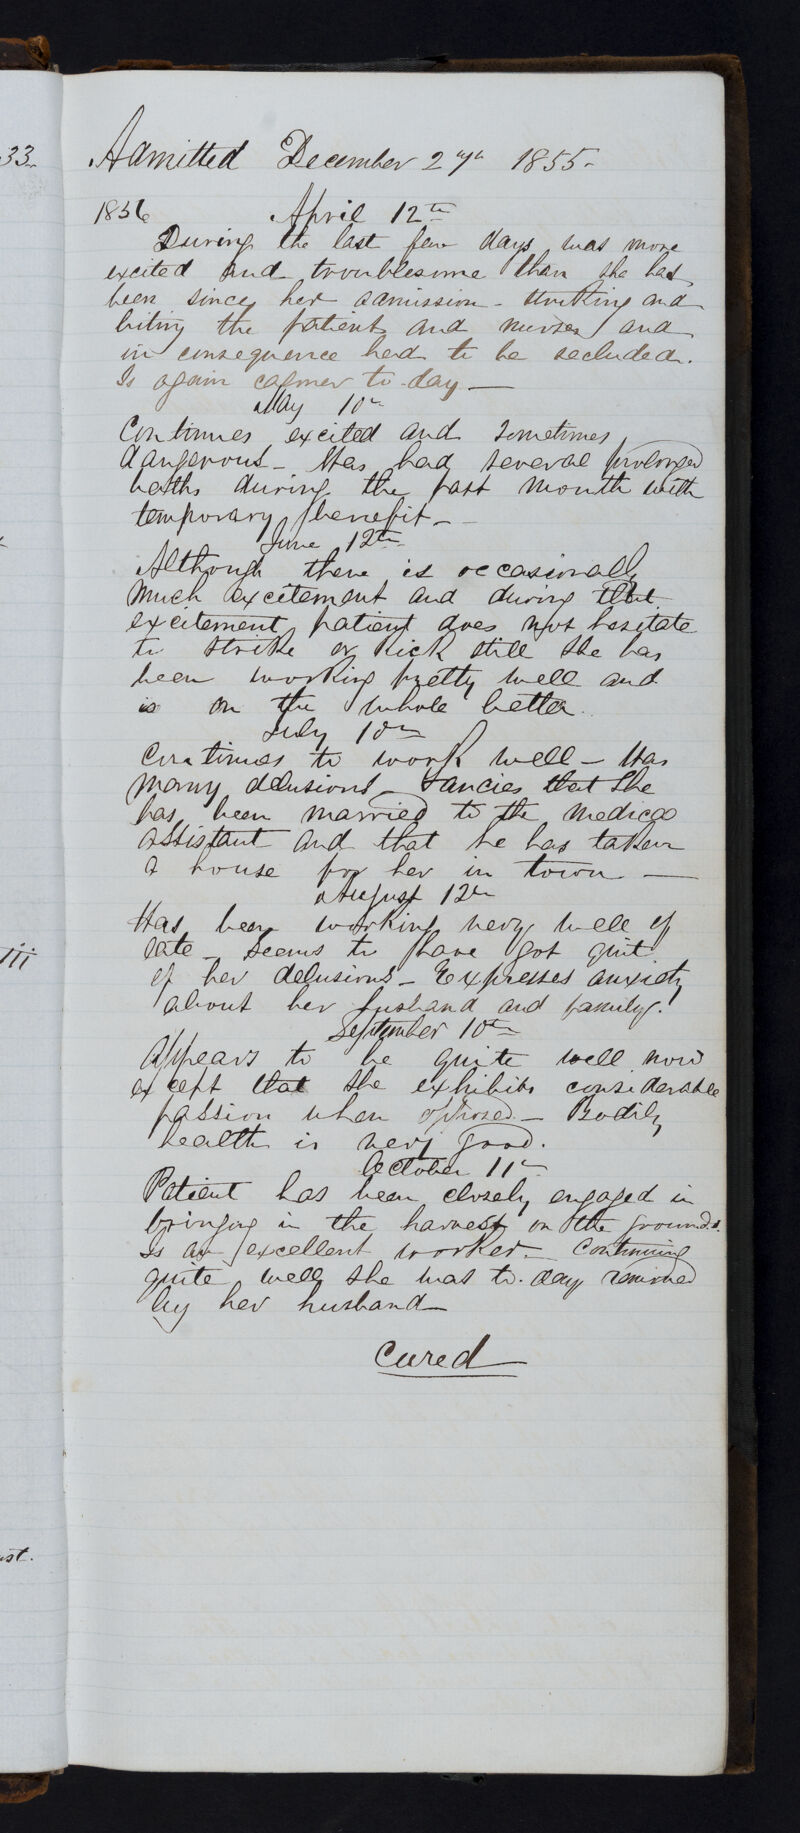 33.
Admitted December 27th 1855-
1856 April 12th
During the last few days was more
excited and troublesome than she has
been since her admission - striking and
biting the patients and nurses and
in consequence had to be secluded.
Is again calmer to-day —
May 10th
Continues excited and sometimes
dangerous - Has had several prolonged
baths during the past month with
temporary benefit -
June 12th
Although there is occasionally
much excitement and during that
excitement patient does not hesitate
to strike or kick still she has
been working pretty well and
is on the whole better.
July 10th
Continues to work well - Has
many delusions - Fancies that she
has been married to the medical
assistant and that he has taken
a house for her in town —
August 12th
Has been working very well of
late - Seems to have got quit
of her delusions - Expresses anxiety
about her husband and family.
September 10th
Appears to be quite well now
except that she exhibits considerable
passion when opposed - Bodily
health is very good.
October 11th
Patient has been closely engaged in
bringing in the harvest on the grounds.
Is an excellent worker - Continuing
quite well she was to-day removed
by her husband -
Cured
iii
ust.